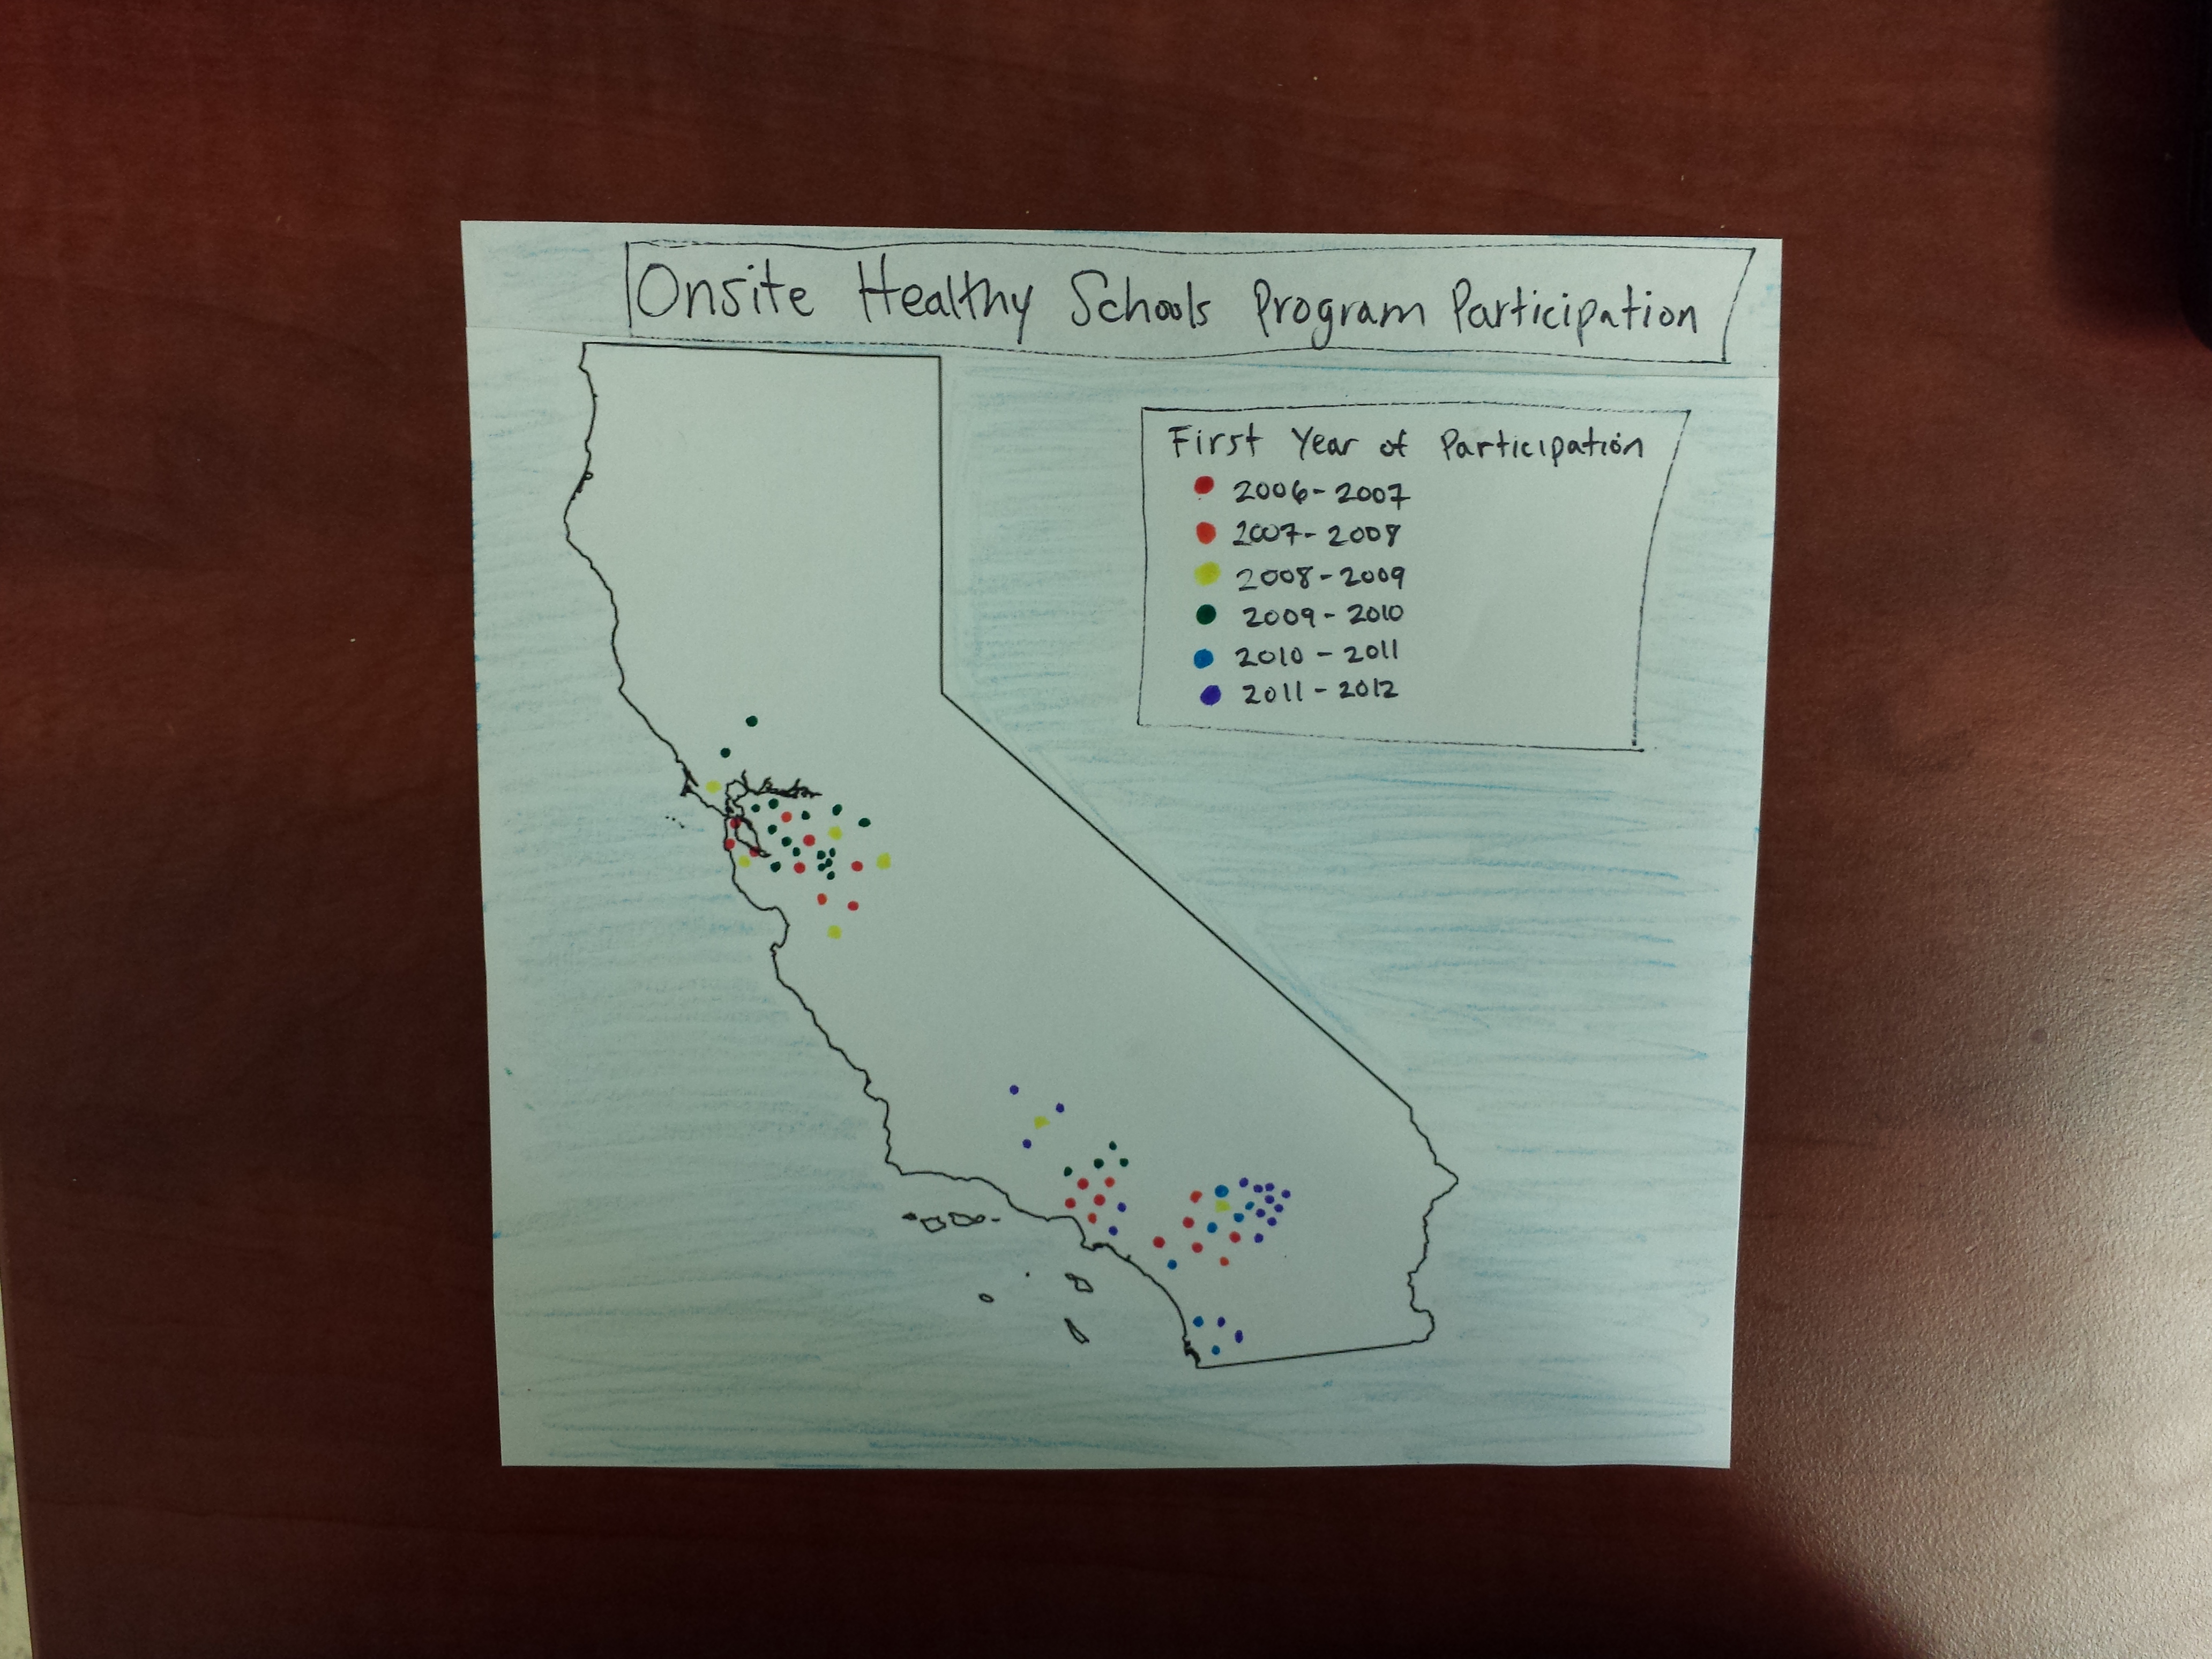 Onsite Healthy Schools Program Participation
First Year of Participation
2006-2007
2007-2008
2008-2009
2009-2010
2010-2011
2011-2012